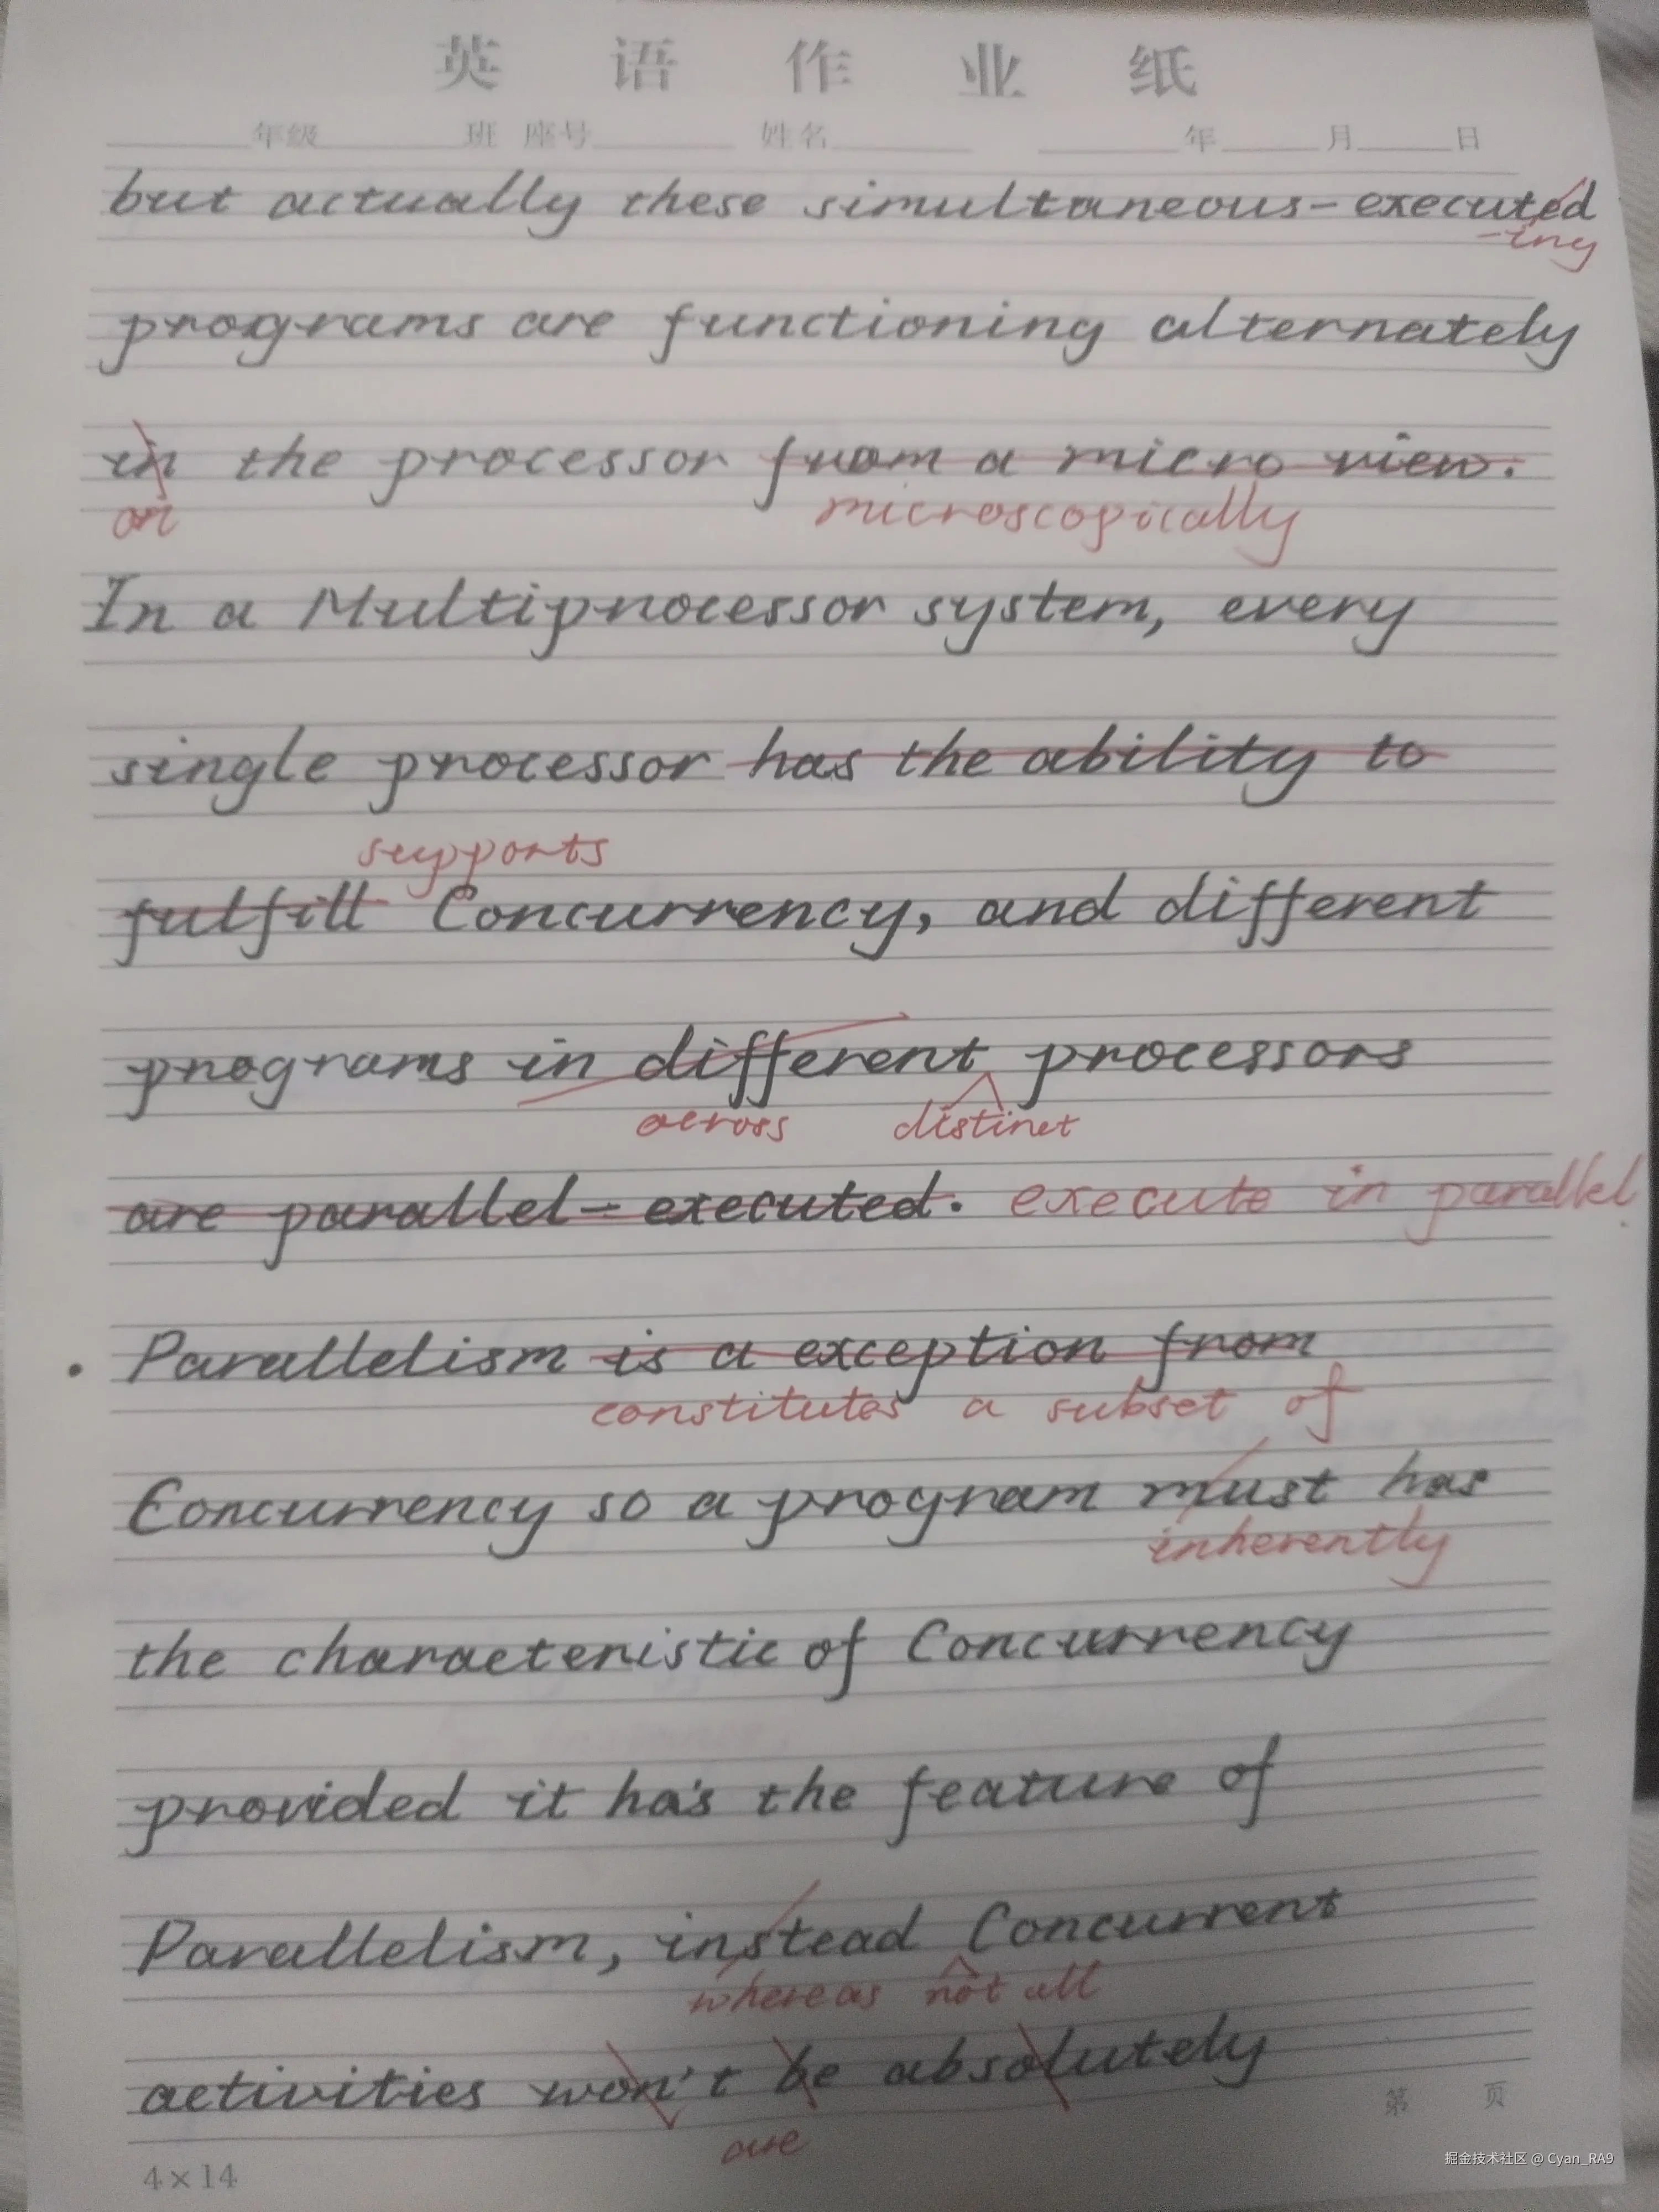 英语作业纸
年级 班 座号 姓名 年 月 日
but actually these simultaneous-executed
-ing
programs are functioning alternately
in the processor from a micro view.
on microscopically
In a Multiprocessor system, every
single processor has the ability to
supports
fulfill Concurrency, and different
programs in different processors
across distinct
are parallel-executed. execute in parallel.
• Parallelism is a exception from
constitutes a subset of
Concurrency so a program must has
inherently
the characteristic of Concurrency
provided it has the feature of
Parallelism, instead Concurrent
whereas not all
activities won't be absolutely
are
第 页
4×14
掘金技术社区 @ Cyan_RA9